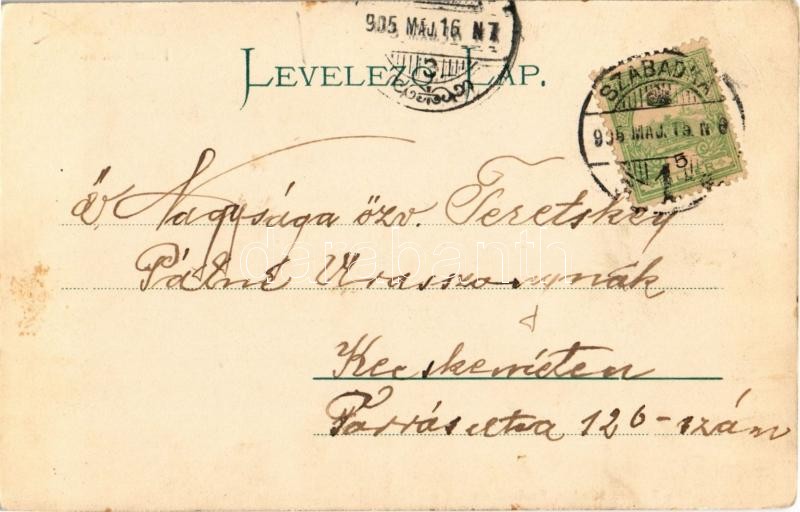 905 MÁJ. 16 N7
LEVELEZŐ LAP.
SZABADKA
905 MÁJ. 15. N 6
5
Őv. Nagysága özv. Teretskey
Pálné Uraszonynák
Kecskeméten
Forrás utca 126-szám
darabanth